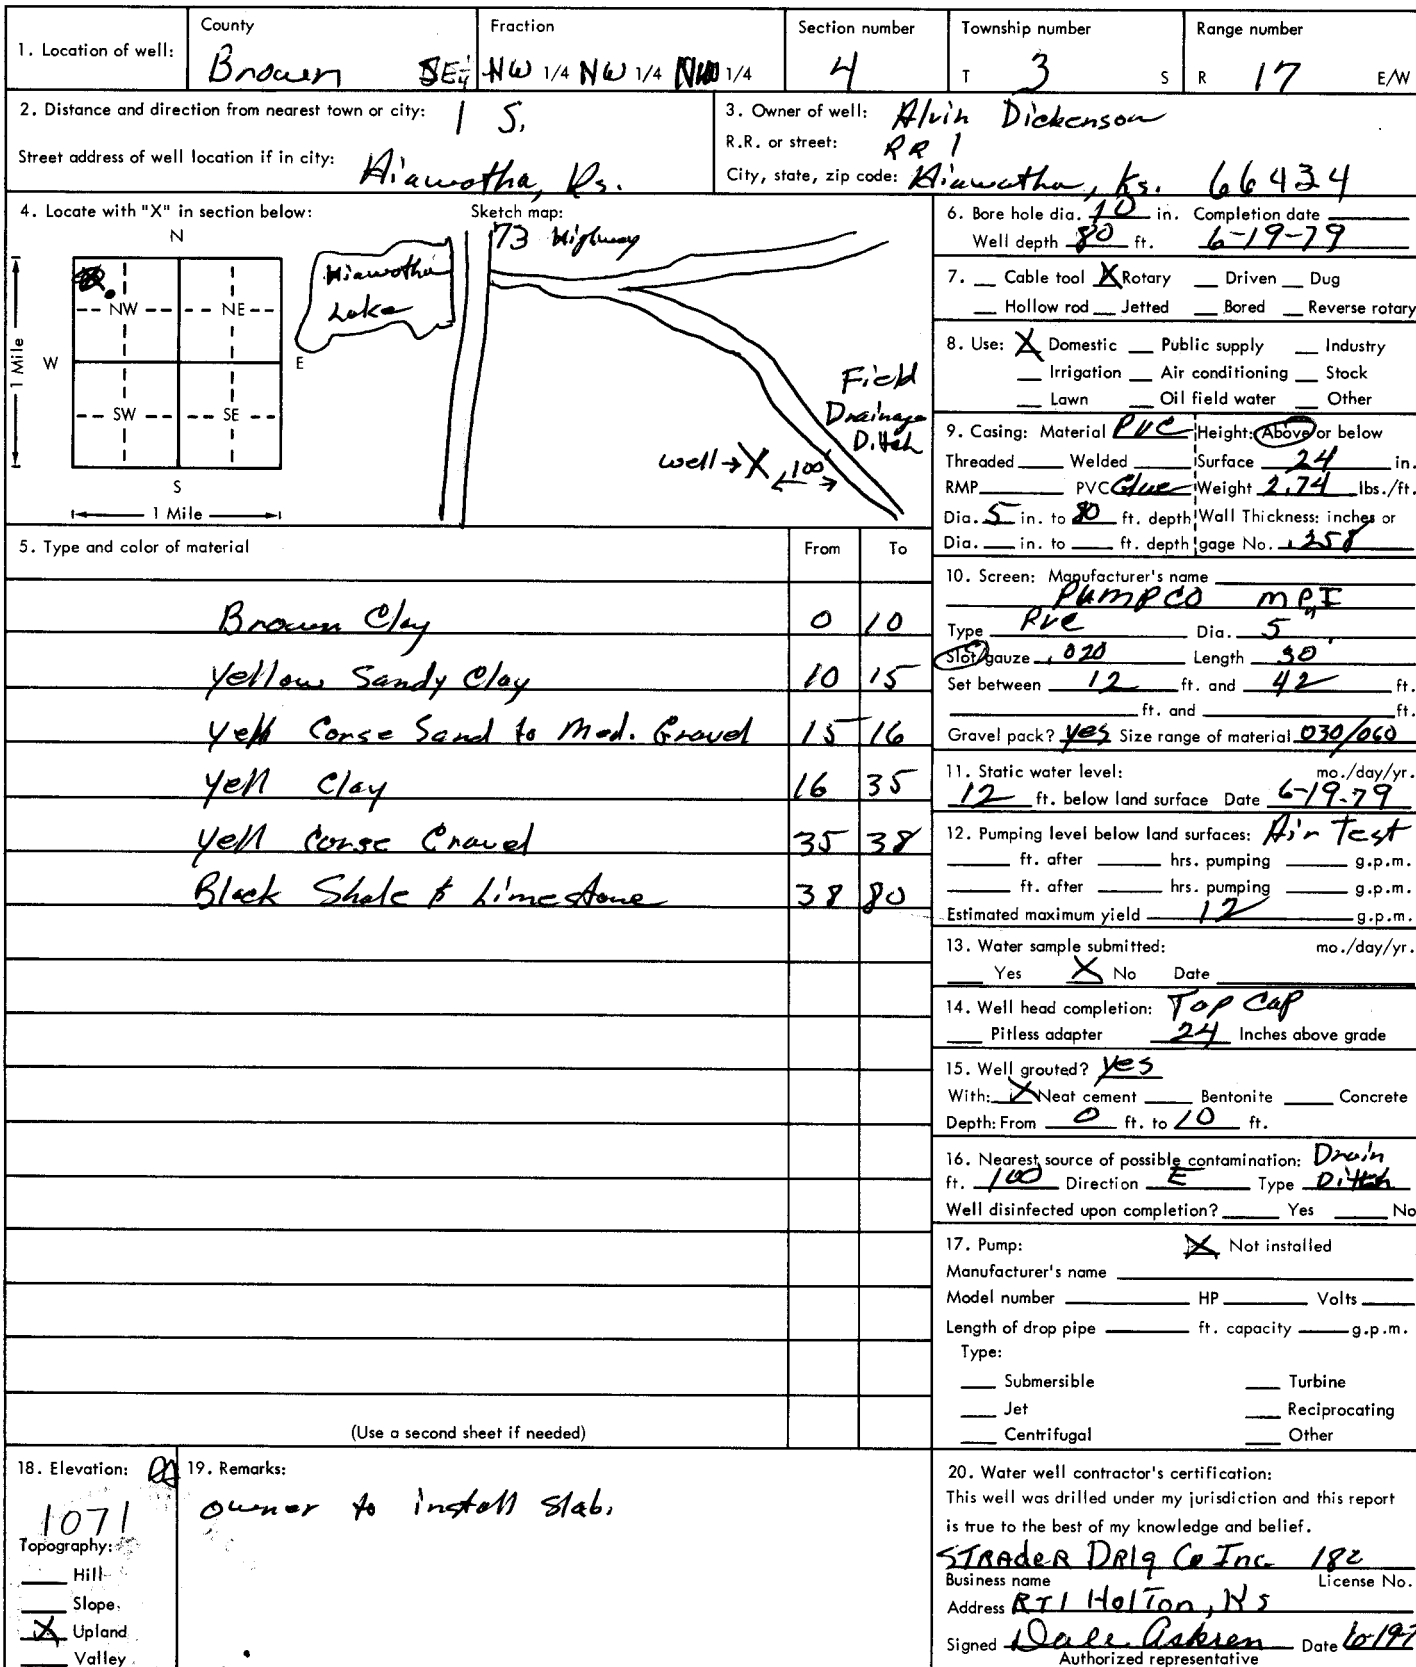 1. Location of well: County Fraction Section number Township number Range number
Brown SE¼ NW 1/4 NW 1/4 NW 1/4 4 T 3 S R 17 E/W
2. Distance and direction from nearest town or city: 1 S.
Street address of well location if in city: Hiawatha, Ks.
3. Owner of well: Alvin Dickenson
R.R. or street: RR 1
City, state, zip code: Hiawatha, Ks. 66434
4. Locate with "X" in section below: Sketch map:
N
73 Highway
Hiawotha
Lake
NW NE
W E
1 Mile
SW SE
S
1 Mile
Field
Drainage
Ditch
well → X 100'
5. Type and color of material From To
Brown Clay 0 10
Yellow Sandy Clay 10 15
Yell Corse Sand to Med. Gravel 15 16
Yell Clay 16 35
Yell Corse Gravel 35 38
Black Shale & Limestone 38 80
(Use a second sheet if needed)
6. Bore hole dia. 10 in. Completion date
Well depth 80 ft. 6-19-79
7. Cable tool X Rotary Driven Dug
Hollow rod Jetted Bored Reverse rotary
8. Use: X Domestic Public supply Industry
Irrigation Air conditioning Stock
Lawn Oil field water Other
9. Casing: Material PVC Height: Above or below
Threaded Welded Surface 24 in.
RMP PVC Glue Weight 2.74 lbs./ft.
Dia. 5 in. to 80 ft. depth Wall Thickness: inches or
Dia. in. to ft. depth gage No. .258
10. Screen: Manufacturer's name
PUMPCO MPI
Type PVC Dia. 5"
Slot/gauze .020 Length 30'
Set between 12 ft. and 42 ft.
ft. and ft.
Gravel pack? yes Size range of material 030/060
11. Static water level: mo./day/yr.
12 ft. below land surface Date 6-19-79
12. Pumping level below land surfaces: Air Test
ft. after hrs. pumping g.p.m.
ft. after hrs. pumping g.p.m.
Estimated maximum yield 12 g.p.m.
13. Water sample submitted: mo./day/yr.
Yes X No Date
14. Well head completion: Top Cap
Pitless adapter 24 Inches above grade
15. Well grouted? yes
With: X Neat cement Bentonite Concrete
Depth: From 0 ft. to 10 ft.
16. Nearest source of possible contamination: Drain
ft. 100 Direction E Type Ditch
Well disinfected upon completion? Yes No
17. Pump: X Not installed
Manufacturer's name
Model number HP Volts
Length of drop pipe ft. capacity g.p.m.
Type:
Submersible Turbine
Jet Reciprocating
Centrifugal Other
18. Elevation:
1071
Topography:
Hill
Slope
X Upland
Valley
19. Remarks:
owner to install slab.
20. Water well contractor's certification:
This well was drilled under my jurisdiction and this report
is true to the best of my knowledge and belief.
STRADER DRlg Co Inc. 182
Business name License No.
Address RT 1 Holton, Ks
Signed Dale Askren Date 6-197
Authorized representative